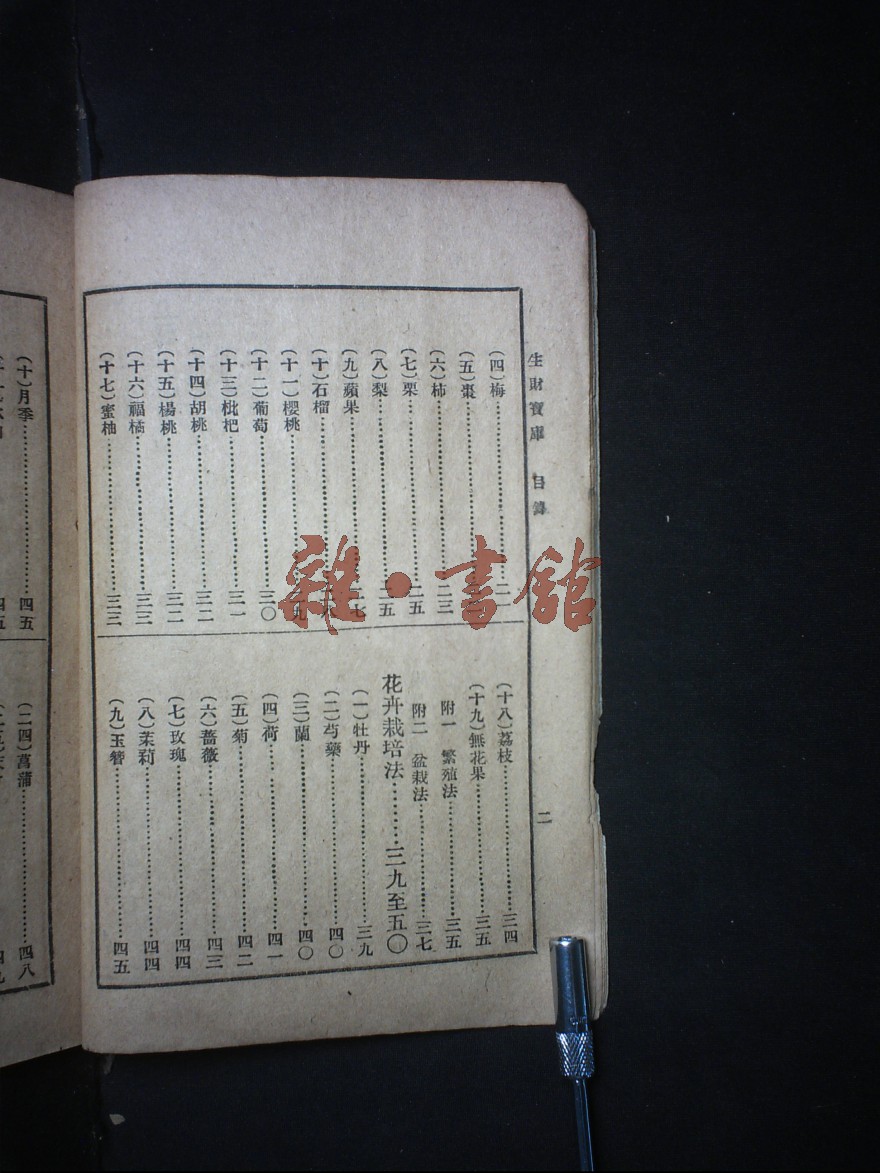 生財寶庫 目錄
二
(四)梅
(五)棗
(六)柿……二三
(七)栗……二五
(八)梨……二五
(九)蘋果
(十)石榴
(十一)櫻桃
(十二)葡萄……三〇
(十三)枇杷……三一
(十四)胡桃……三二
(十五)楊桃……三二
(十六)福橘……三三
(十七)蜜柚……三三
(十八)荔枝……三四
(十九)無花果……三五
附一 繁殖法……三五
附二 盆栽法……三七
花卉栽培法……三九至五〇
(一)牡丹……三九
(二)芍藥……四〇
(三)蘭……四〇
(四)荷……四一
(五)菊……四二
(六)薔薇……四三
(七)玫瑰……四四
(八)茉莉……四四
(九)玉簪……四五
(十)月季……四五
(二四)菖蒲……四八
雜·書館